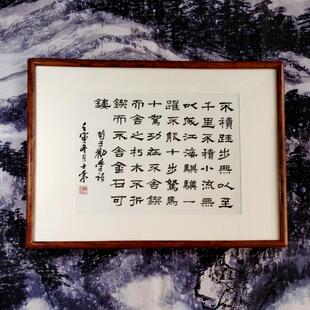 不積跬步無以至
千里不積小流無
以成江海騏驥一
躍不能十步駑馬
十駕功在不舍鍥
而舍之朽木不折
鍥而不舍金石可
鏤
荀子勸學語
壬寅年月